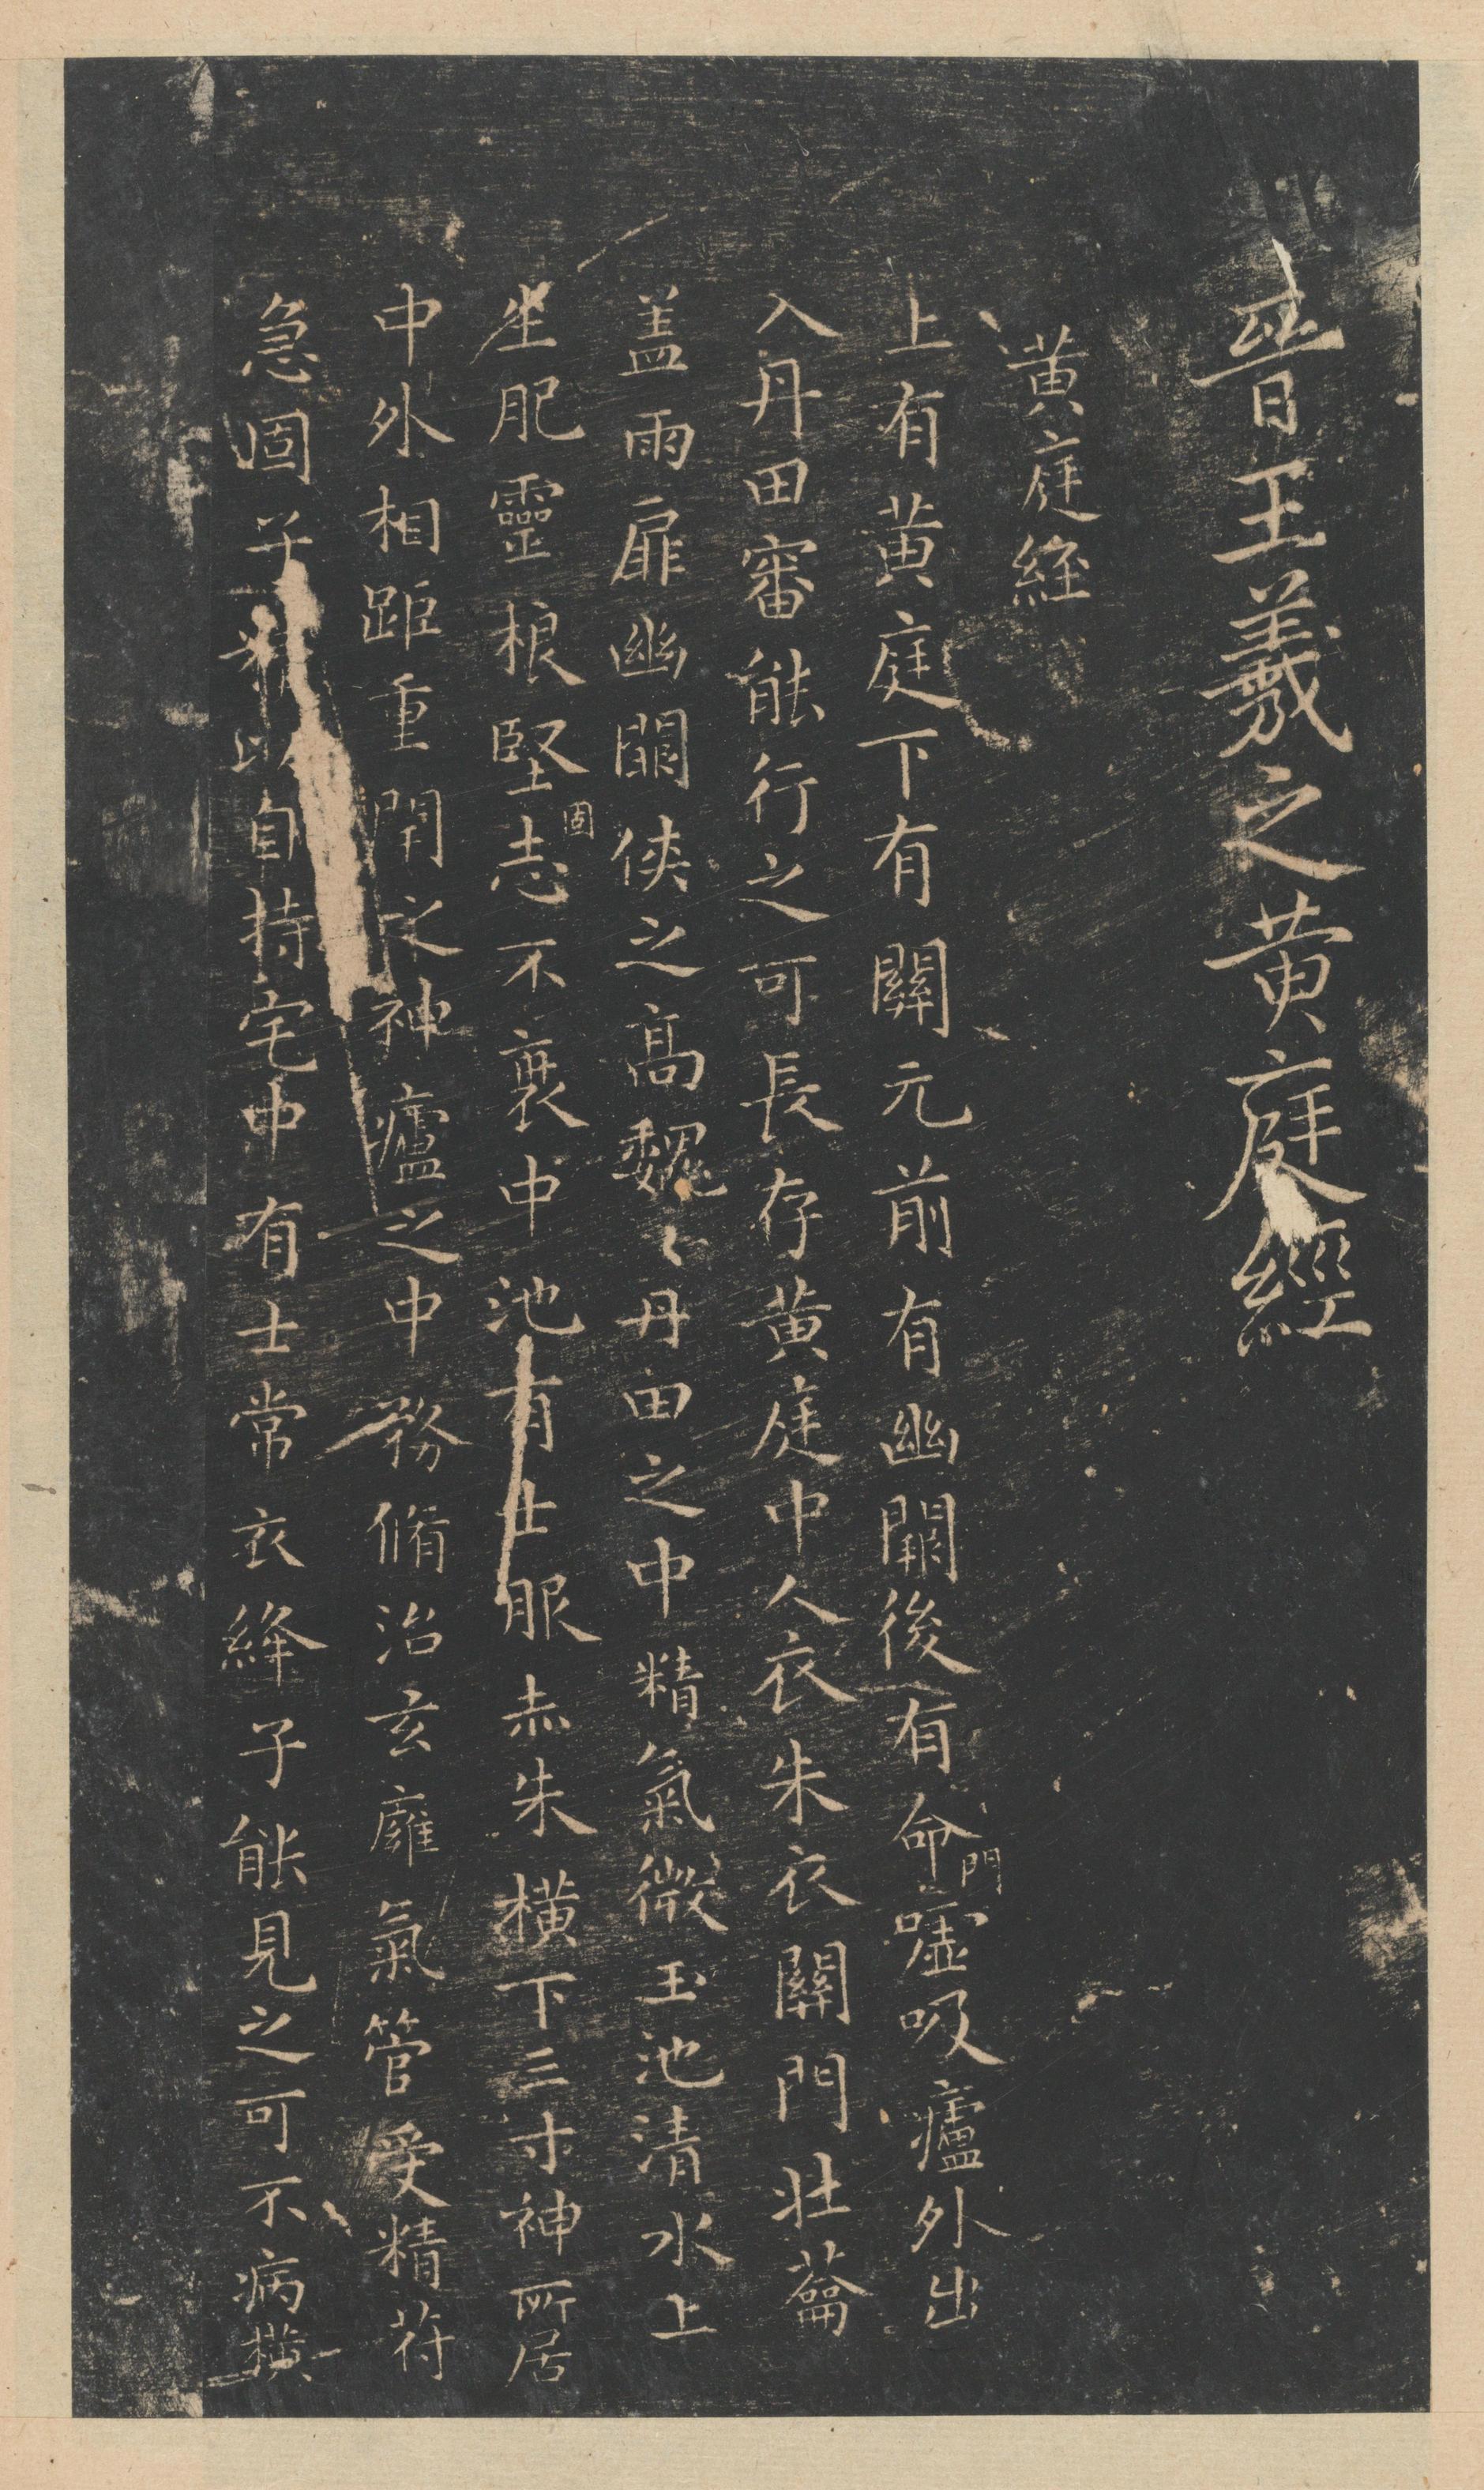 晉王羲之黄庭經
黄庭經
上有黄庭下有關元前有幽闕後有命門噓吸廬外出
入丹田審能行之可長存黄庭中人衣朱衣關門壯蘥
盖兩扉幽闕俠之高魏〻丹田之中精氣微玉池清水上
生肥靈根堅固志不衰中池有士服赤朱橫下三寸神所居
中外相距重閇之神廬之中務脩治玄廱氣管受精苻
急固子精以自持宅中有士常衣絳子能見之可不病橫